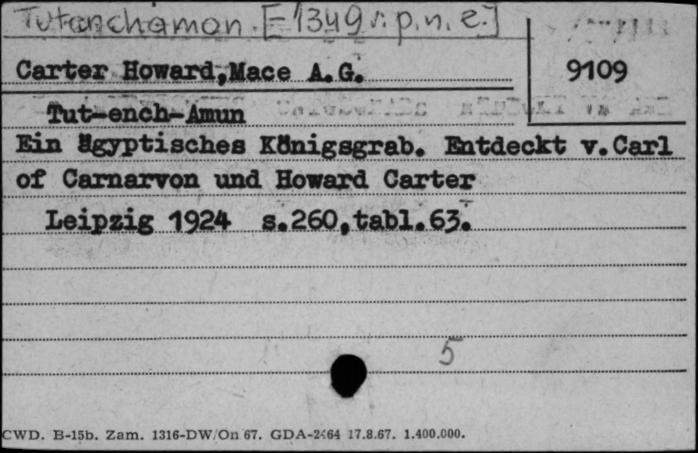 Tutanchamon [-1349 r. p. n. e.]
9109
Carter Howard,Mace A.G.
Tut-ench-Amun
Ein ägyptisches Königsgrab. Entdeckt v.Carl
of Carnarvon und Howard Carter
Leipzig 1924 s.260,tabl.63.
5
CWD. B-15b. Zam. 1316-DW/On 67. GDA-2464 17.8.67. 1.400.000.